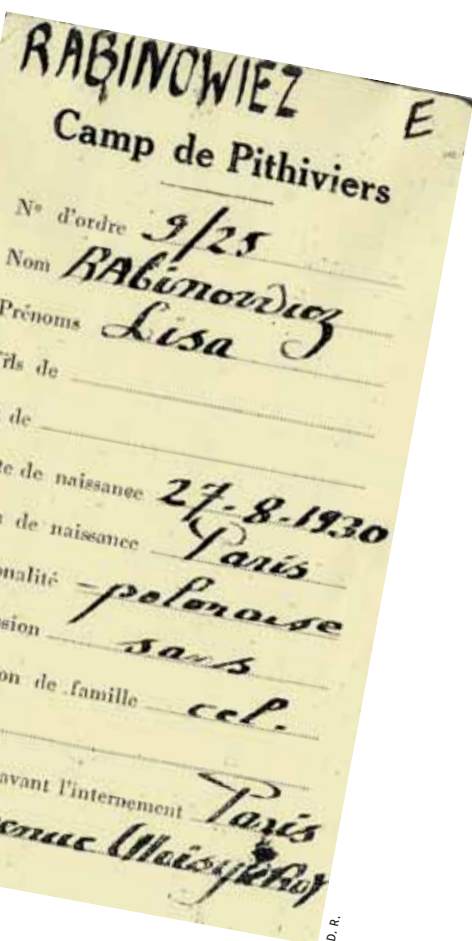 RABINOWIEZ
E
Camp de Pithiviers
N° d'ordre 9/25
Nom RAbinowicz
Prénoms Lisa
fils de
de
te de naissance 27-8-1930
de naissance Paris
onalité polonaise
sion sans
on de famille cel.
avant l'internement Paris
D. R.